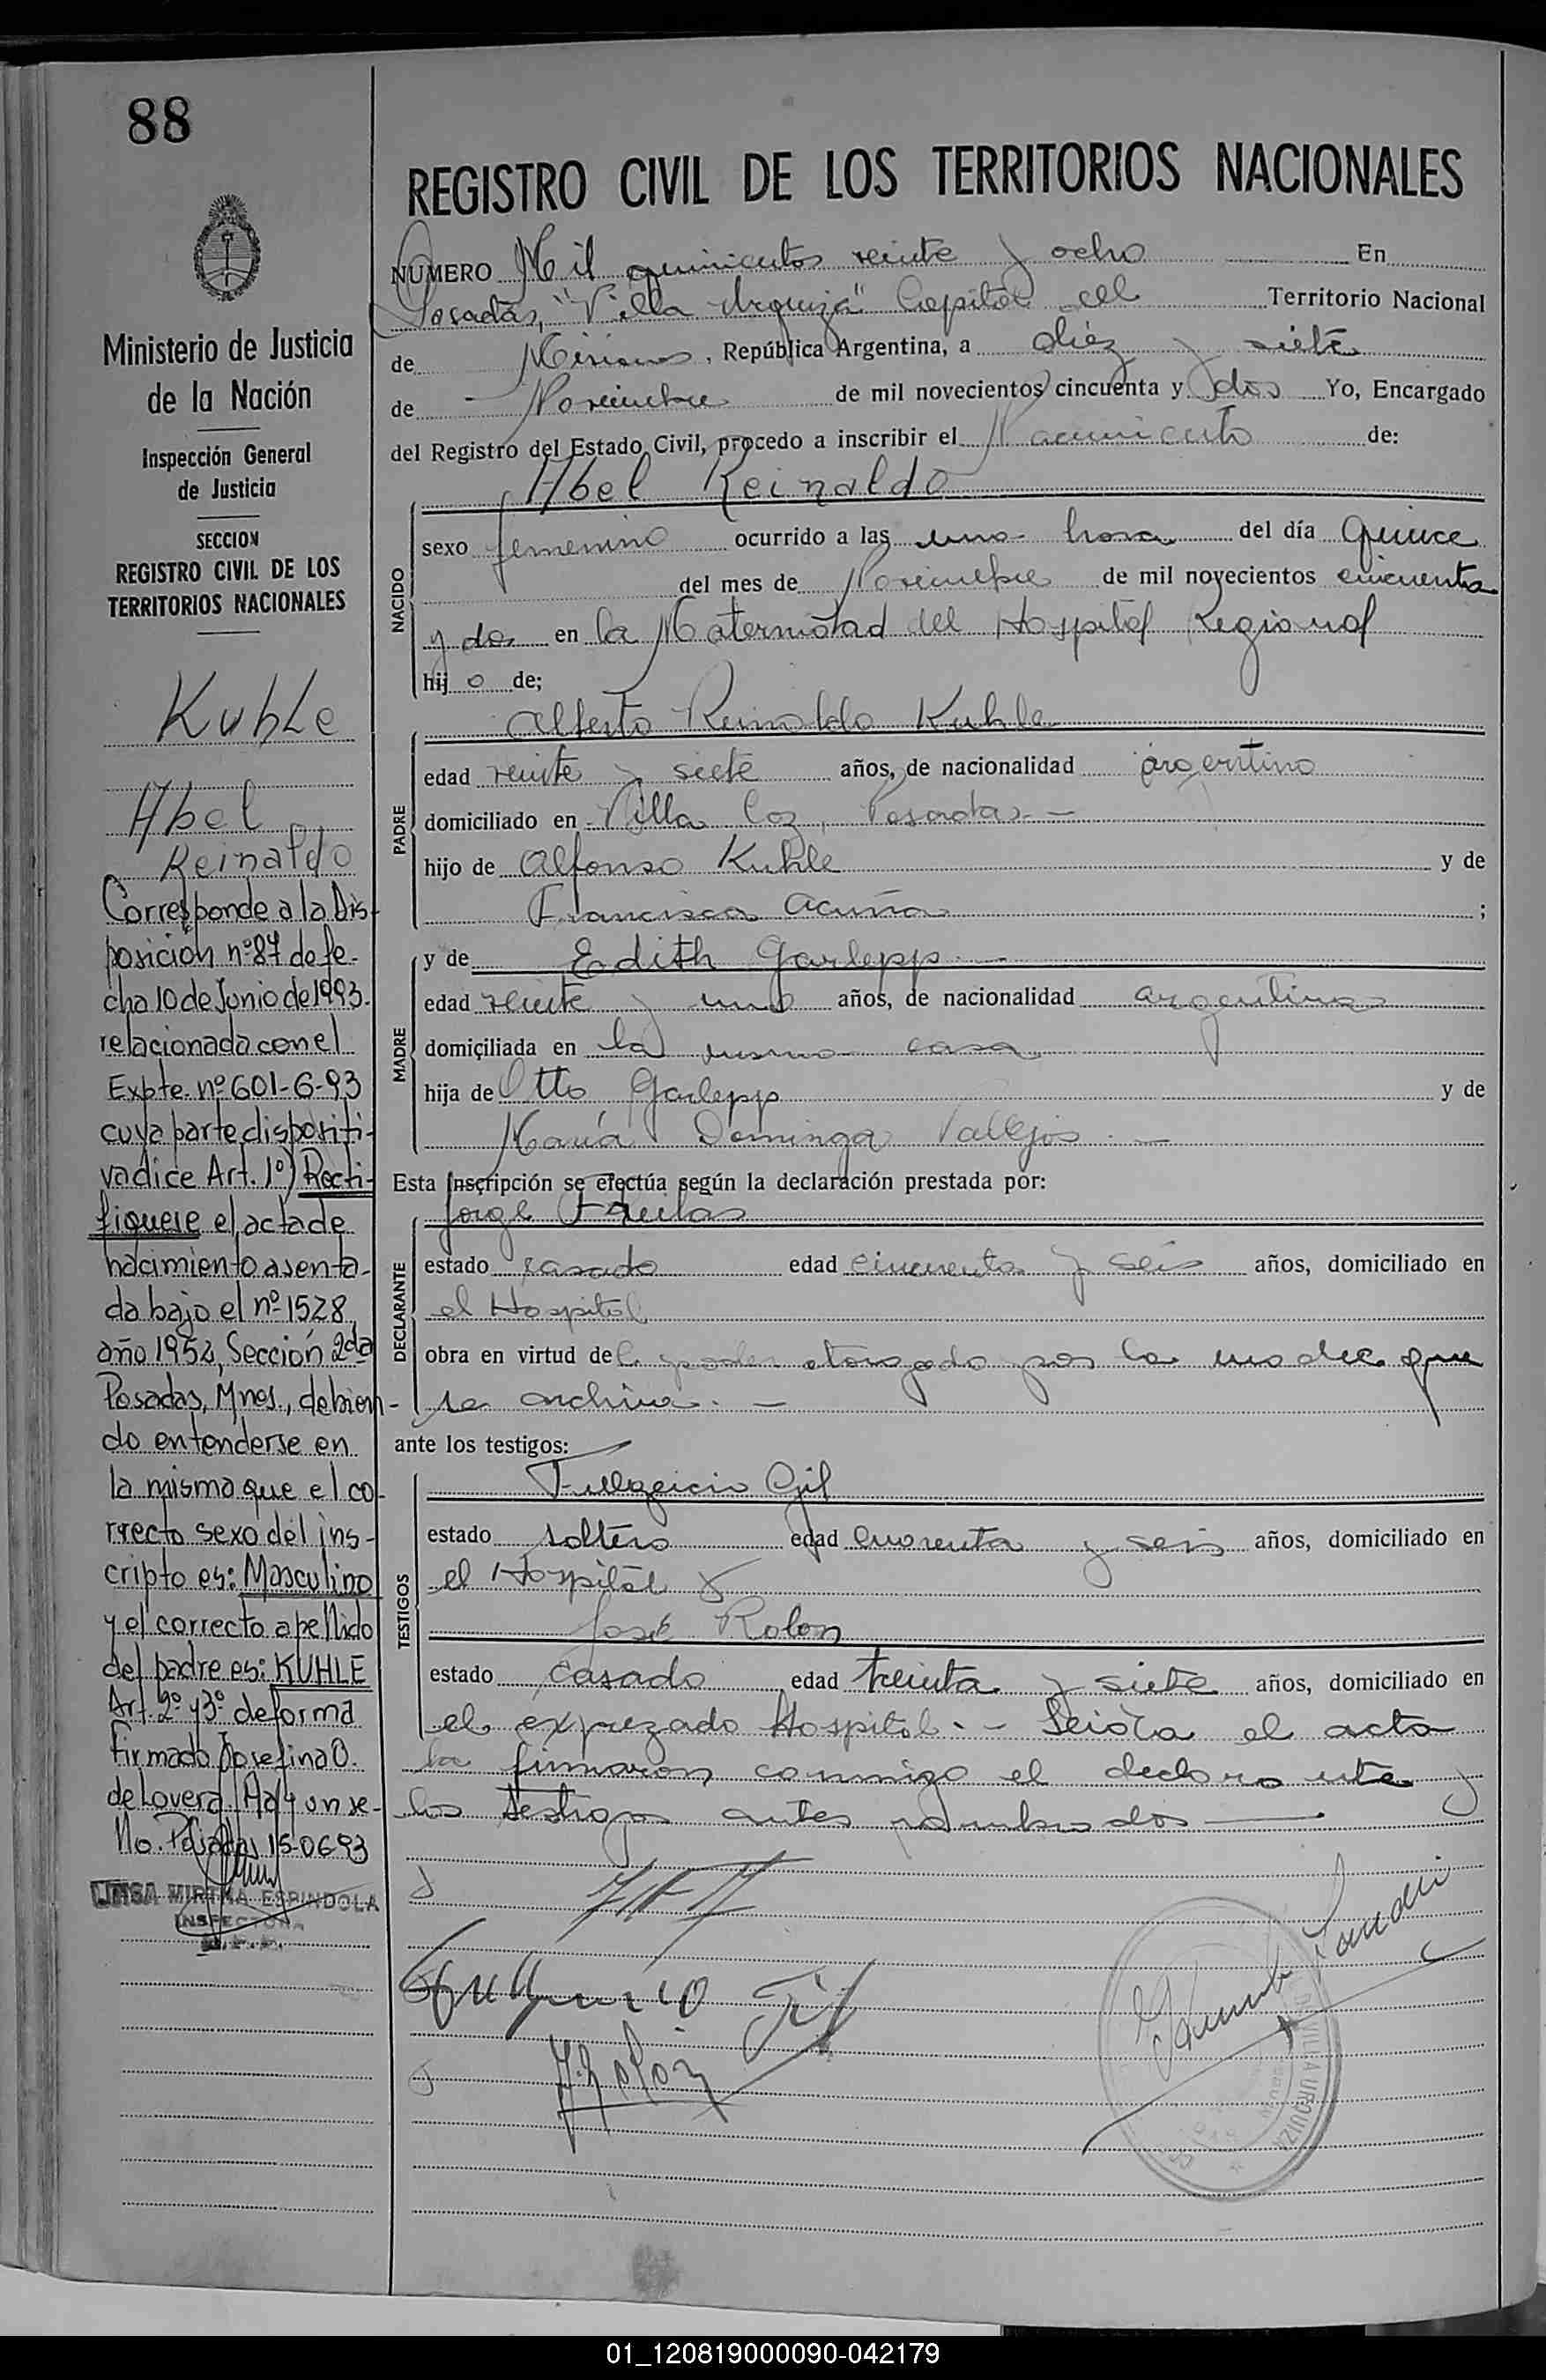 88
Ministerio de Justicia
de la Nación
Inspección General
de Justicia
SECCION
REGISTRO CIVIL DE LOS
TERRITORIOS NACIONALES
Kuhle
Abel
Reinaldo
Corresponde a la Dis-
posición nº 87 de fe-
cha 10 de Junio de 1993.
relacionada con el
Expte. nº 601-6-93
cuya parte dispositi-
va dice Art. 1º) Recti-
fiquese el acta de
nacimiento asenta-
da bajo el nº 1528
año 1952, Sección 2da
Posadas, Mnes., debien-
do entenderse en
la misma que el co-
rrecto sexo del ins-
cripto es: Masculino
y el correcto apellido
del padre es: KUHLE
Art. 2º y 3º de forma
Firmado Josefina O.
de Lovera Hay un se-
llo. Posadas 15-06-93
MIRTHA ESPINDOLA
INSPECTORA
REGISTRO CIVIL DE LOS TERRITORIOS NACIONALES
NUMERO Mil quinientos veinte y ocho En
Posadas, "Villa Urquiza" Capital del Territorio Nacional
de Misiones, República Argentina, a diez y siete
de Noviembre de mil novecientos cincuenta y dos Yo, Encargado
del Registro del Estado Civil, procedo a inscribir el Nacimiento de:
Abel Reinaldo
NACIDO
sexo femenino ocurrido a las una hora del día quince
del mes de Noviembre de mil novecientos cincuenta
y dos en la Maternidad del Hospital Regional
hijo de;
PADRE
Alberto Reinaldo Kuhle
edad veinte y siete años, de nacionalidad argentino
domiciliado en Villa Coz, Posadas.—
hijo de Alfonso Kuhle y de
Francisca Acuña ;
MADRE
y de Edith Garlepp.—
edad veinte y uno años, de nacionalidad argentina
domiciliada en la misma casa
hija de Otto Garlepp y de
María Dominga Vallejos.—
Esta Inscripción se efectúa según la declaración prestada por:
DECLARANTE
Jorge
estado casado edad cincuenta y seis años, domiciliado en
el Hospital
obra en virtud del poder otorgado por la madre que
se archiva.—
ante los testigos:
TESTIGOS
Fulgencio Gil
estado soltero edad cuarenta y seis años, domiciliado en
el Hospital y
José Rolon
estado casado edad treinta y siete años, domiciliado en
el exprezado Hospital.- Leida el acta
la firmaron conmigo el declarante y
los testigos antes nombrados —
Fulgencio Gil
J. Rolon
VILLA URQUIZA
01_120819000090-042179